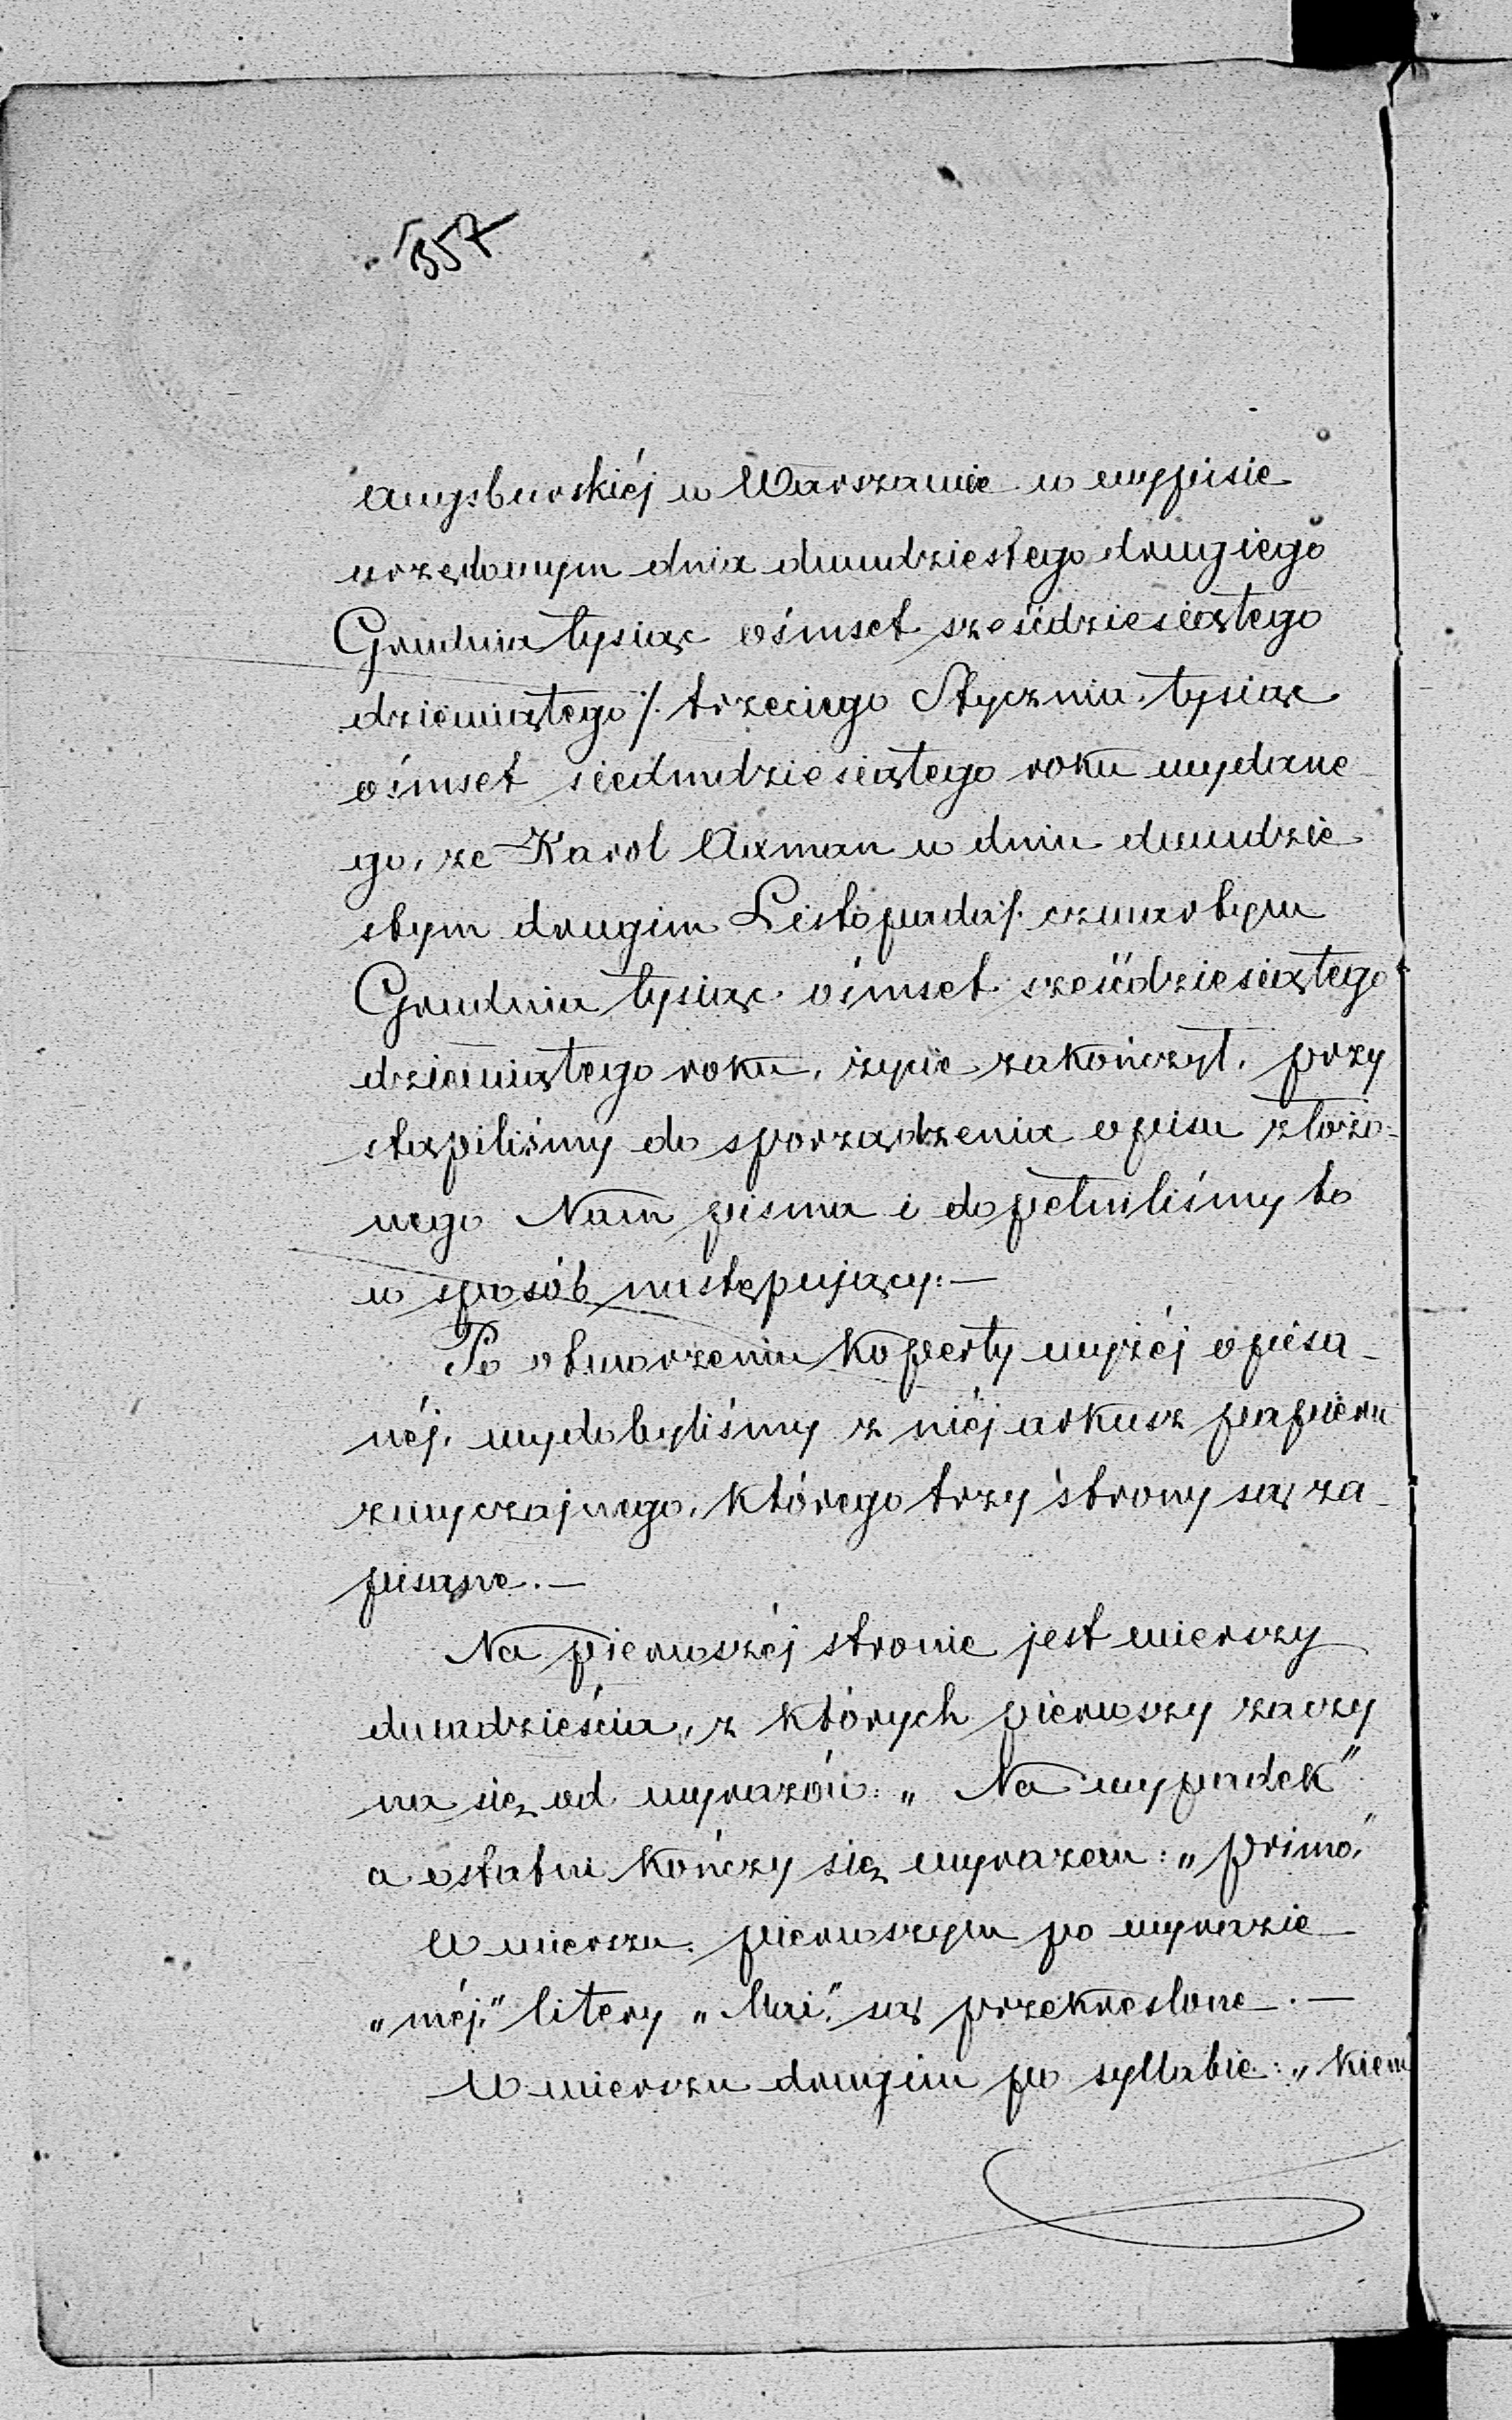 357
augsburskiéj w Warszawie w wypisie
urzędowym dnia dwudziestego drugiego
Grudnia tysiąc ośmset sześćdziesiątego
dziewiątego /. trzeciego Stycznia, tysiąc
ośmset siedmdziesiątego roku wydane
go, że Karol Axman w dniu dwudzie
stym drugim Listopada /. czwartym
Grudnia tysiąc ośmset sześćdziesiątego
dziewiątego roku, życie zakończył, przy
stąpiliśmy do sporządzenia opisu złożo-
nego Nam pisma i dopełniliśmy to
w sposób następujący: —
Po otworzeniu koperty wyżéj opisa-
néj, wydobyliśmy z niéj arkusz papieru
zwyczajnego, którego trzy strony są za-
pisane. —
Na pierwszéj stronie jest wierszy
dwadzieścia, z których pierwszy zaczy
na się od wyrazów: „Na wypadek”
a ostatni kończy się wyrazem: „primo,”
W wierszu pierwszym po wyrazie
„méj,” litery „Mai,” są przekreślone. —
W wierszu drugim po syllabie: „kiem